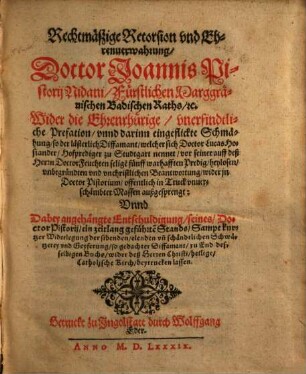 Rechtmäßige Retorsion vnd Eh-
renuerwahrung/
Doctor Joannis Pi-
storij Nidani/ Fürstlichen Marggrä-
uischen Badischen Raths/ ꝛc.
Wider die Ehrenrhürige/ vnerfindtli-
che Prefation/ vnnd darinn eingeflickte Schmä-
hung/ so der lästerlich Diffamant/ welcher sich Doctor Lucas Os-
siander/ Hofprediger zu Studtgart nennet/ vor seiner auff deß
Herrn Doctor Feuchten selige fünff warhafften Predig/ heylosen/
vnbegründten vnd vnchristlichen Beantwortung/ wider jn
Doctor Pistorium/ offentlich in Truck vnuer-
schämbter Massen außgesprengt:
Vnnd
Dabey angehängte Entschuldigung/ seines/ Do-
ctor Pistorij/ ein zeitlang geführte Stands/ Sampt kur-
tzer Widerlegung der sibenden/ elenden vñ schändtlichen Schwä-
tzerey vnd Gesperung/ so gedachter Diffamant/ zu End des-
selbigen Buchs/ wider deß Herren Christi/ heilige/
Catholische Kirch/ beytrucken lassen.
Getruckt zu Ingolstatt durch Wolffgang
Eder.
ANNO M. D. LXXXIX.